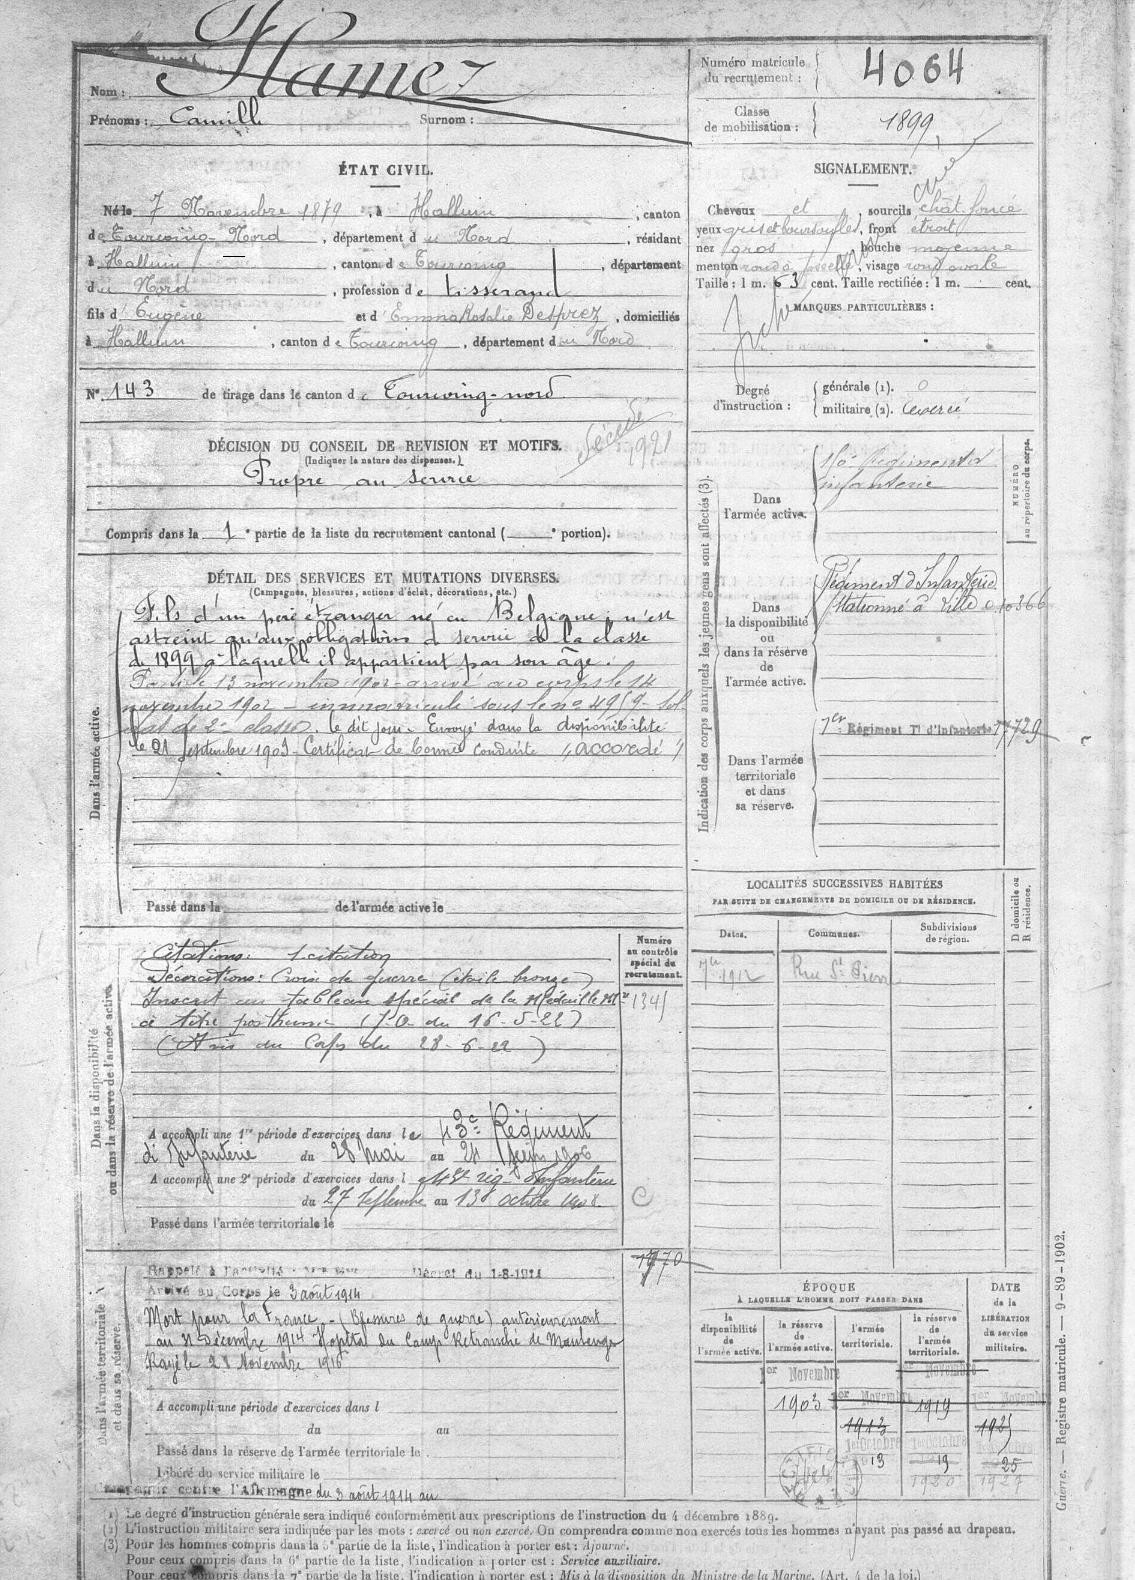 Nom : Hamez
Prénoms : Camille Surnom :
Numéro matricule du recrutement : 4064
Classe de mobilisation : 1899
ÉTAT CIVIL.
Né le 7 Novembre 1879, à Halluin, canton
de Tourcoing Nord, département du Nord, résidant
à Halluin, canton de Tourcoing, département
du Nord, profession de tisserand
fils d' Eugène et d' Emma Rosalie Desprez, domiciliés
à Halluin, canton de Tourcoing, département du Nord
N° 143 de tirage dans le canton de Tourcoing-nord
SIGNALEMENT.
Cheveux et sourcils chat. foncé
yeux gris et boursouflés, front étroit
nez gros bouche moyenne
menton rond à fossette, visage rond ovale
Taille : 1 m. 63 cent. Taille rectifiée : 1 m. cent.
MARQUES PARTICULIÈRES :
Degré d'instruction : générale (1). 0
militaire (2). exercé
DÉCISION DU CONSEIL DE REVISION ET MOTIFS.
(Indiquer la nature des dispenses.)
Propre au service
Décédé
1921
Compris dans la 1e partie de la liste du recrutement cantonal ( e portion).
DÉTAIL DES SERVICES ET MUTATIONS DIVERSES.
(Campagnes, blessures, actions d'éclat, décorations, etc.)
Dans l'armée active.
Fils d'un père étranger né en Belgique, n'est
astreint qu'aux obligations d service de la classe
de 1899 à laquelle il appartient par son âge.
Parti le 13 novembre 1902 - arrivé au corps le 14
novembre 1902 - immatriculé sous le no 4959 - Sol-
dat de 2e classe. le dit jour. Envoyé dans la disponibilité
le 21 septembre 1903 - Certificat de bonne conduite "accordé"
Passé dans la de l'armée active le
Indication des corps auxquels les jeunes gens sont affectés (3).
NUMÉRO au répertoire du corps.
Dans l'armée active.
Régiment d'
infanterie
Dans la disponibilité ou dans la réserve de l'armée active.
Régiment d'Infanterie
stationné à Lille 010366
Dans l'armée territoriale et dans sa réserve.
7er Régiment Tal d'Infanterie 17729
LOCALITÉS SUCCESSIVES HABITÉES
PAR SUITE DE CHANGEMENTS DE DOMICILE OU DE RÉSIDENCE.
Dates. Communes. Subdivisions de région. D domicile ou R résidence.
1912 Rue St Pierre
Dans la disponibilité ou dans la réserve de l'armée active.
Numéro au contrôle spécial du recrutement.
Citations : 1 citation
Décorations : Croix de guerre (étoile bronze)
Inscrit au tableau spécial de la Médaille Mre
à titre posthume (J.O. du 16-5-22)
(Avis du Corps du 28-6-22)
A accompli une 1re période d'exercices dans le 43e Régiment
d'Infanterie du 28 mai au 24 juin 1906
A accompli une 2e période d'exercices dans l
du 27 septembre au 13 octobre 1908.
Passé dans l'armée territoriale le
Dans l'armée territoriale et dans sa réserve.
Rappelé à l'activité Décret du 1-8-1914
Arrivé au Corps le 3 août 1914
Mort pour la France - (blessures de guerre) antérieurement
au 31 Décembre 1914 Hopital du Camp Retranché de Maubeuge
Rayé le 28 Novembre 1916
A accompli une période d'exercices dans l
du au
Passé dans la réserve de l'armée territoriale le
Libéré du service militaire le
Campagne contre l'Allemagne du 3 août 1914 au
ÉPOQUE
A LAQUELLE L'HOMME DOIT PASSER DANS
DATE de la LIBÉRATION du service militaire.
la disponibilité de l'armée active. la réserve de l'armée active. l'armée territoriale. la réserve de l'armée territoriale.
1er Novembre 1903
1er Novembre 1913
1er Novembre 1919
1er Novembre 1925
1er Octobre 13
1er Octobre 19
25
Guerre. — Registre matricule. — 9-89-1902.
(1) Le degré d'instruction générale sera indiqué conformément aux prescriptions de l'instruction du 4 décembre 1889.
(2) L'instruction militaire sera indiquée par les mots : exercé ou non exercé. On comprendra comme non exercés tous les hommes n'ayant pas passé au drapeau.
(3) Pour les hommes compris dans la 5e partie de la liste, l'indication à porter est : Ajourné.
Pour ceux compris dans la 6e partie de la liste, l'indication à porter est : Service auxiliaire.
Pour ceux compris dans la 7e partie de la liste, l'indication à porter est : Mis à la disposition du Ministre de la Marine. (Art. 4 de la loi.)